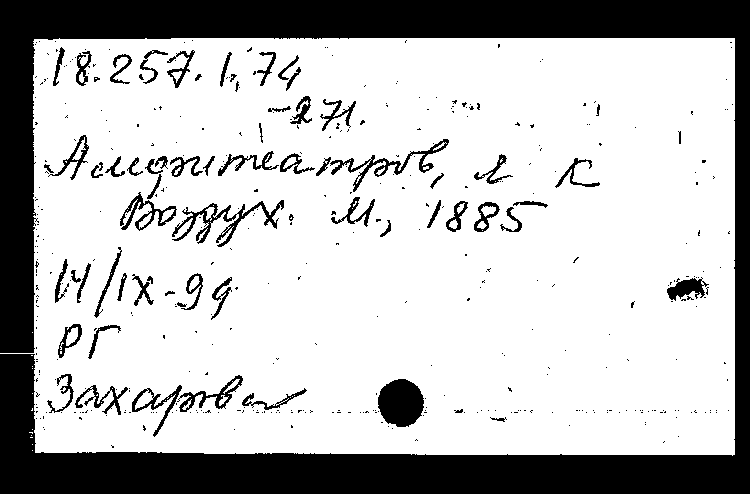 18.257.1.74
-271.
Амфитеатров, Л К
Воздух. М., 1885
14/IX-99
РГ
Захарова